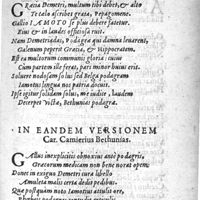 GRæcia Demetri, multum tibi debet, & alto
Te cœlo ascribet grata, Pepagomene.
Gallia IAMOTO se plus debere fatetur.
Eius & in laudes officiosa ruit.
Nam Demetriadas, Podagra qui damna leuarent,
Galenum peperit Græcia, & Hippocratem.
Est ea multorum communis gloria: cuius
Cum partem ille ferat, pars minor huius erit.
Soluere nodosam solus sed Belga podagram
Iamotus lingua nos patria docuit.
Ipse igitur solidam solus, me iudice, laudem
Decerpet docta, Bethunias podagra.
IN EANDEM VERSIONEM
Car. Camierius Bethunias.
GAllus inexplicitis obnoxius ante podagris,
Græcorum medicam non bene norat opem:
Donec in exiguo Demetri cura libello
Amuleta malis certa dedit pedibus.
Quæ postquam noto Iamotus attulit ore,